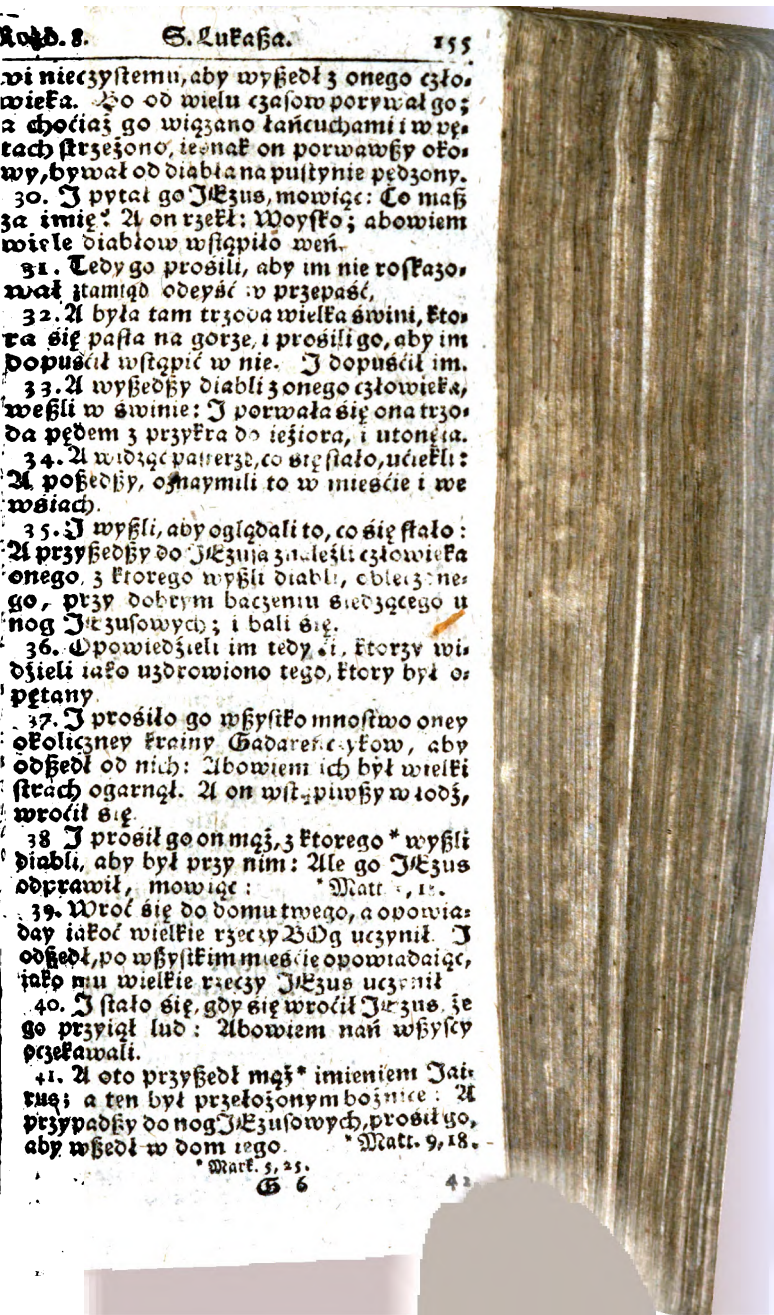 Rozd. 8. S. Lukaßa. 155
wi nieczystemu, aby wyßedł z onego czło-
wieka. Bo od wielu czasow porywał go;
a choćiaż go wiązano łańcuchami i w pę-
tach strzeżono, iednak on porwawßy oko-
wy, bywał od diabła na pustynie pędzony.
30. I pytał go JEzus, mowiąc: Co maß
za imię? A on rzekł: Woysko; abowiem
wiele diabłow wstąpiło weń.
31. Tedy go prośili, aby im nie roskazo-
wał ztamtąd odeyść w przepaść,
32. A była tam trzoda wielka świni, kto-
ra się pasła na gorze, i prośili go, aby im
dopuśćił wstąpić w nie. I dopuśćił im.
33. A wyßedßy diabli z onego człowieka,
weßli w świnie: I porwała się ona trzo-
da pędem z przykra do ieźiora, i utonęła.
34. A widząc pasterze, co się stało, ućiekli:
A poßedßy, oznaymili to w mieśćie i we
wśiach.
35. I wyßli, aby oglądali to, co się stało:
A przyßedßy do JEzusa znaleźli człowieka
onego, z ktorego wyßli diabli, obleczone-
go, przy dobrym baczeniu śiedzącego u
nog JEzusowych; i bali się.
36. Opowiedźieli im tedy ći, ktorzy wi-
dźieli iako uzdrowiono tego, ktory był o-
pętany
37. I prośiło go wßystko mnostwo oney
okoliczney krainy Gadareńczykow, aby
odßedł od nich: Abowiem ich był wielki
strach ogarnął. A on wstąpiwßy w łodź,
wroćił się.
38 I prośił go on mąż, z ktorego * wyßli
diabli, aby był przy nim: Ale go JEzus
odprawił, mowiąc: * Matt
39. Wroć się do domu twego, a opowia-
day iakoć wielkie rzeczy BOg uczynił I
odßedł, po wßystkim mieśćie opowiadaiąc,
iako mu wielkie rzeczy JEzus uczynił
40. I stało się, gdy się wroćił JEzus, że
go przyiął lud: Abowiem nań wßyscy
oczekawali.
41. A oto przyßedł mąż * imieniem Jai-
rus; a ten był przełożonym bożnice: A
przypadßy do nog JEzusowych, prośił go,
aby wßedł w dom iego * Matt. 9, 18.
* Mark. 5, 25.
G 6 42